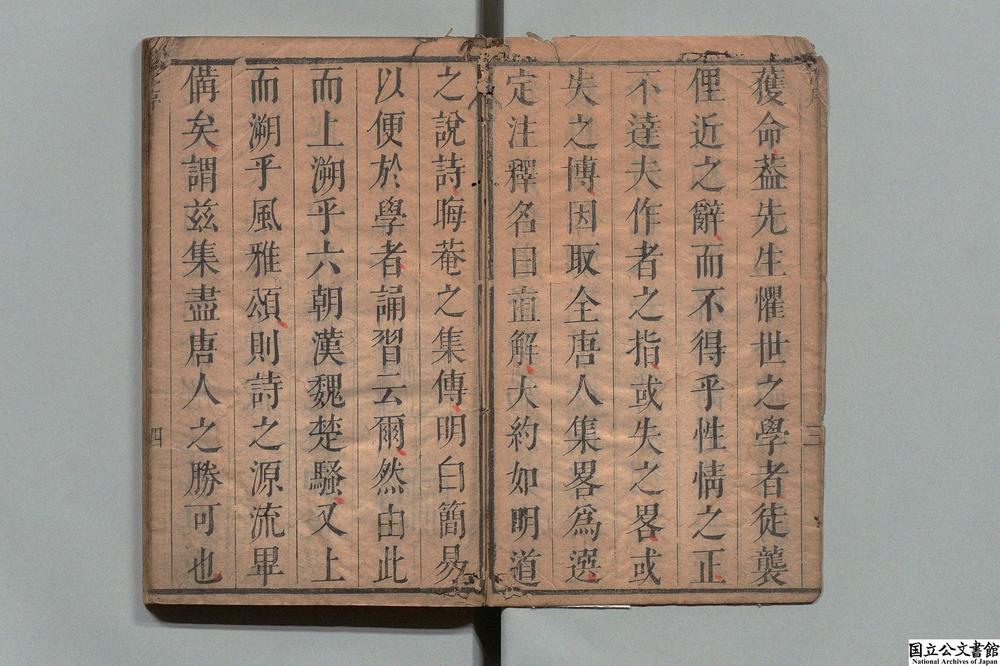 獲命葢先生懼世之學者徒襲
俚近之辭而不得乎性情之正
不達夫作者之指或失之畧或
失之傳因取全唐人集畧爲選
定注釋名曰直解大約如明道
之說詩晦菴之集傳明白簡易
以便於學者誦習云爾然由此
而上溯乎六朝漢魏楚騷又上
而溯乎風雅頌則詩之源流畢
備矣謂兹集盡唐人之勝可也
序
三
四
国立公文書館
National Archives of Japan